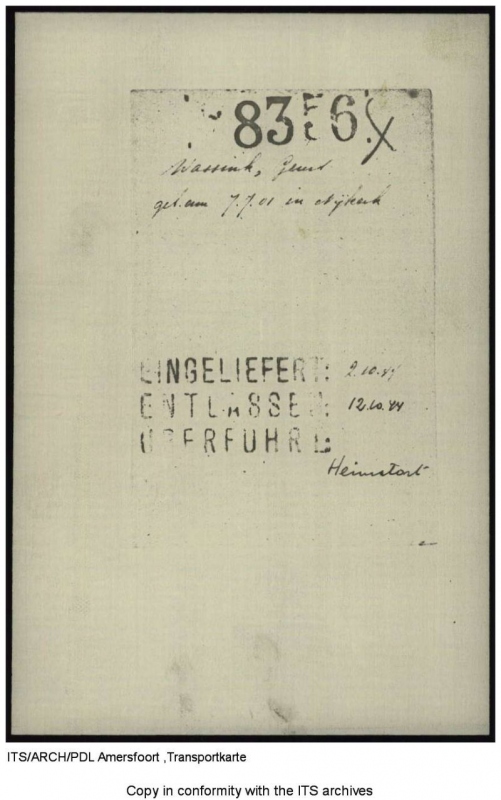 83 6 X
Wassink, Geurt
geb. am 7.7.01 in Nijkerk
EINGELIEFERT: 2.10.44
ENTLASSEN: 12.10.44
ÜBERFÜHRT:
Heimatort
ITS/ARCH/PDL Amersfoort ,Transportkarte
Copy in conformity with the ITS archives